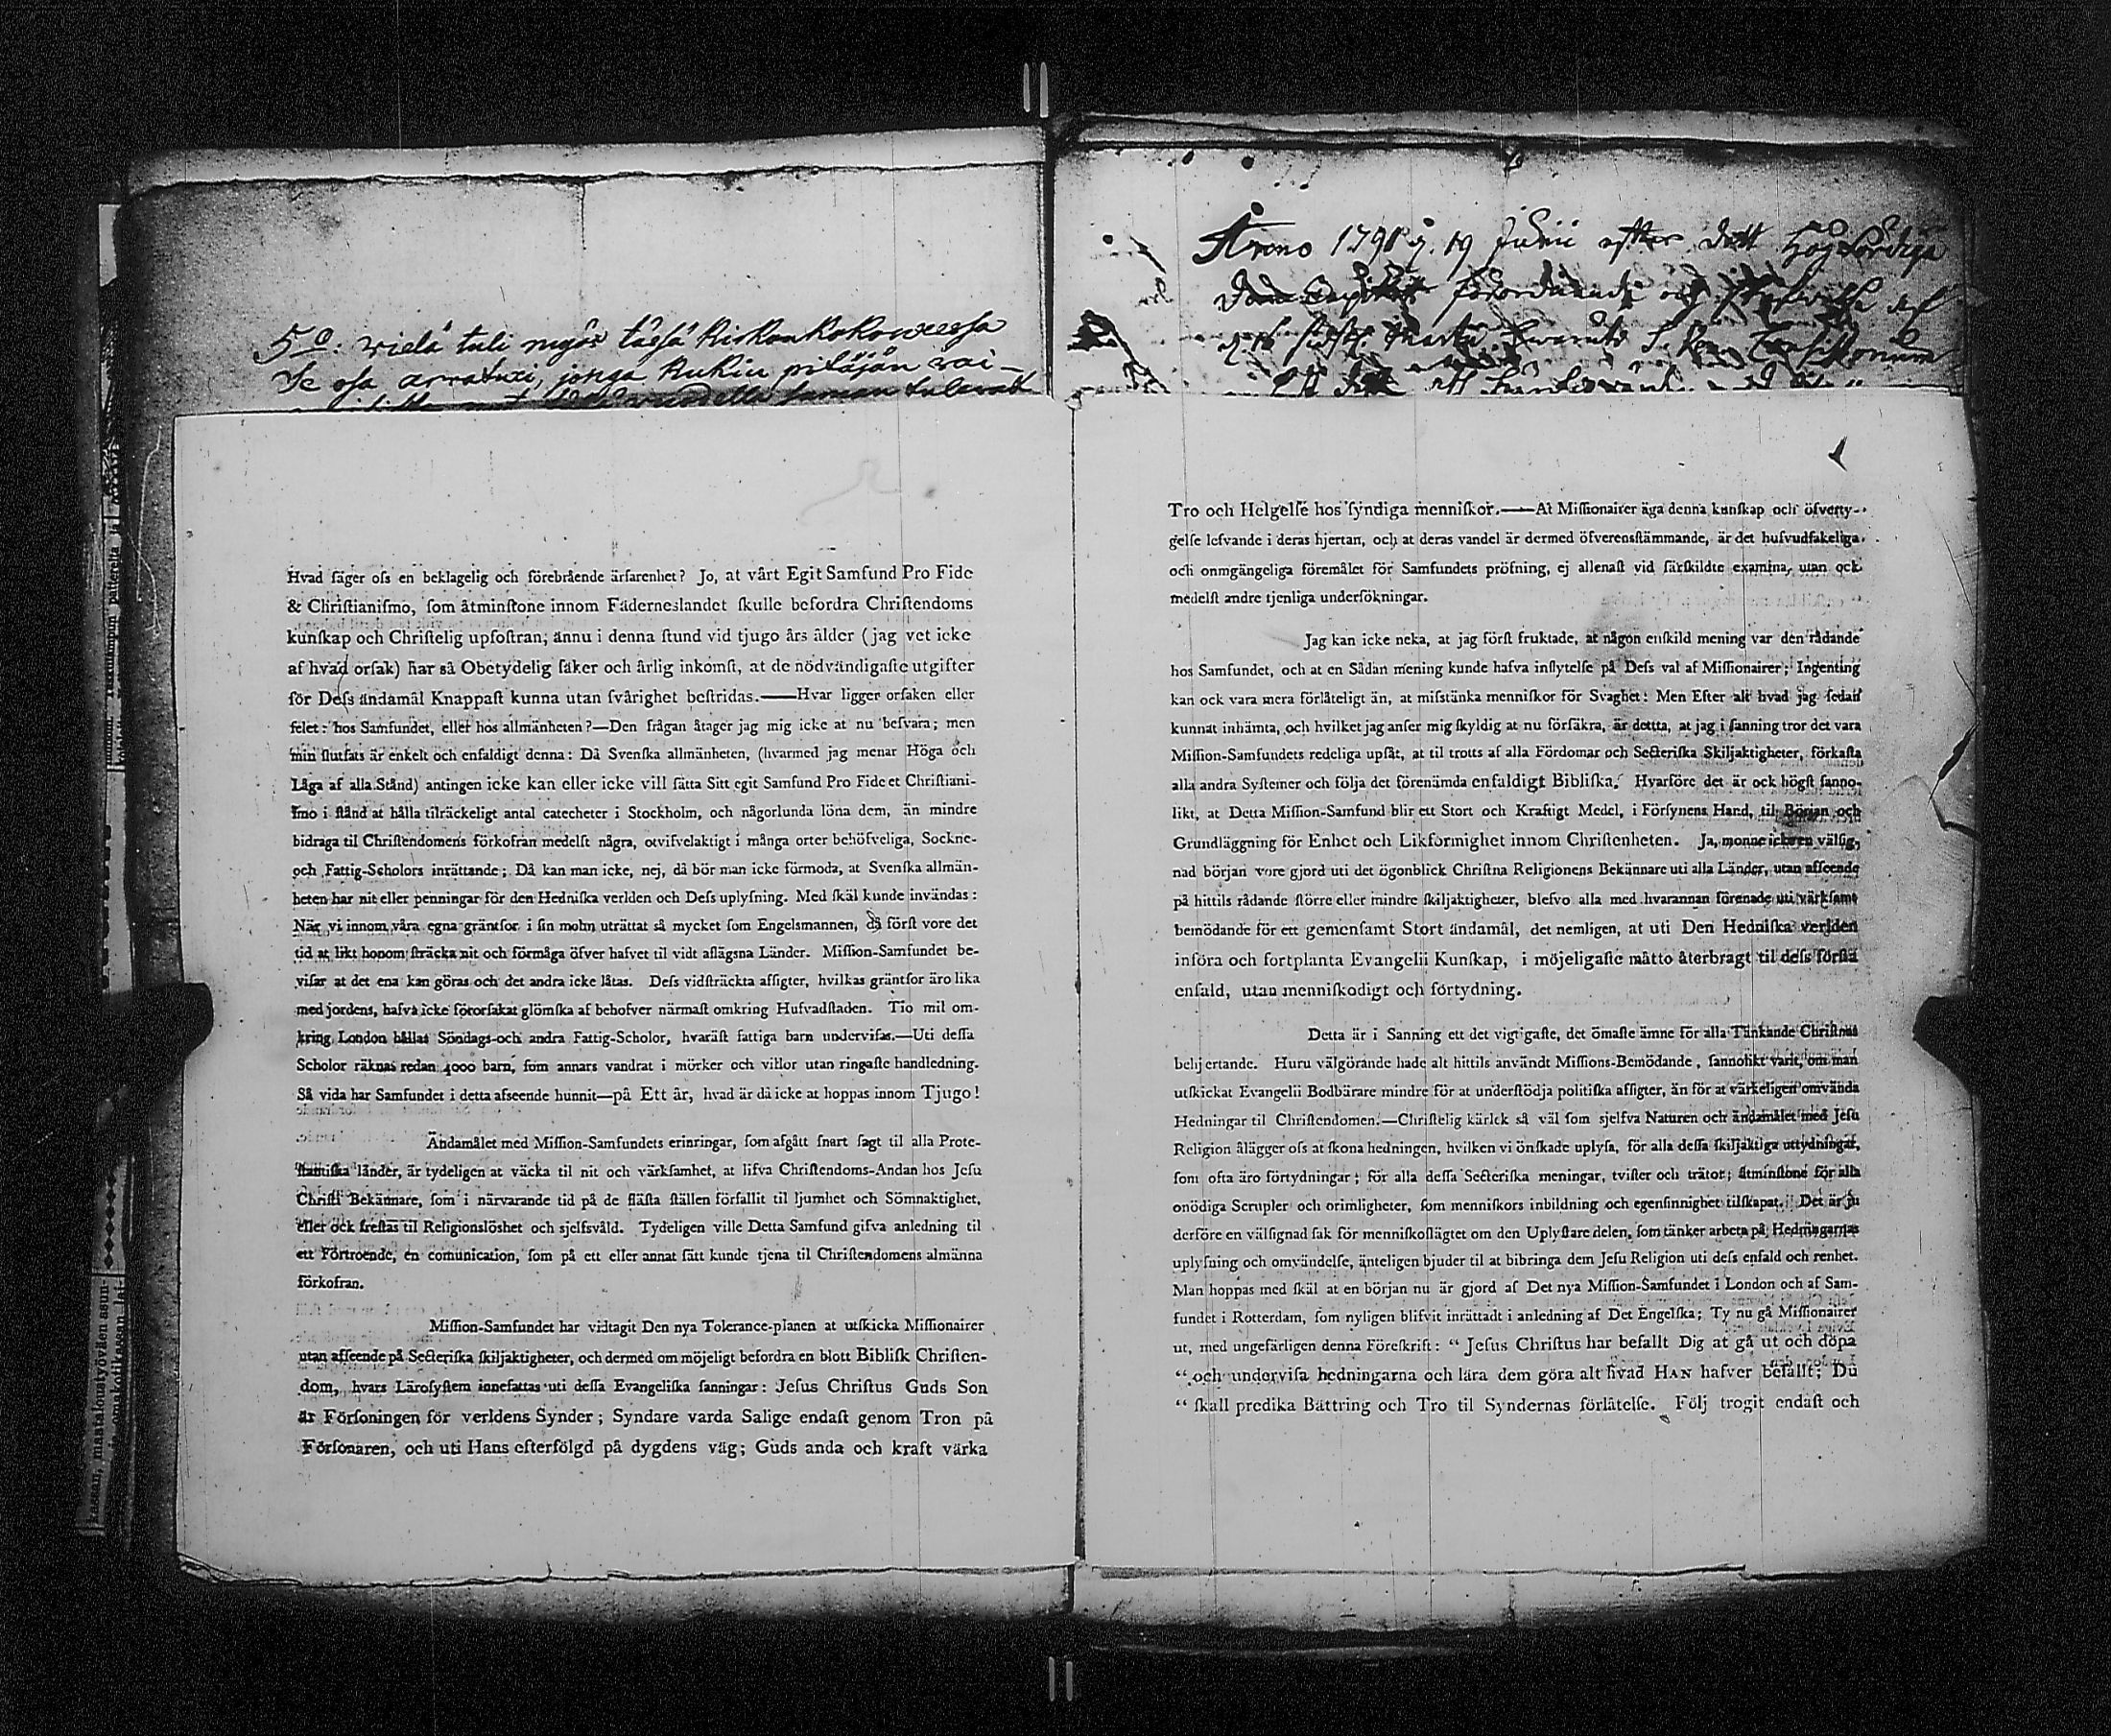 5º: wielä tuli myös täsä kirkonkokouxessa
se osa arwatuxi, jonga kukin pitäjän
Hvad ſäger oſs en beklagelig och förebrående ärfarenhet? Jo, at vårt Egit Samfund Pro Fide
& Chriſtianiſmo, ſom åtminſtone innom Fäderneslandet ſkulle befordra Chriſtendoms
kunſkap och Chriſtelig upfoſtran; ännu i denna ſtund vid tjugo års ålder (jag vet icke
af hvad orſak) har så Obetydelig ſäker och årlig inkomſt, at de nödvändigaſte utgifter
för Deſs ändamål Knappaſt kunna utan ſvårighet beſtridas.——Hvar ligger orſaken eller
felet: hos Samfundet, eller hos allmänheten?—Den frågan åtager jag mig icke at nu beſvara; men
min ſlutſats är enkelt och enfaldigt denna: Då Svenſka allmänheten, (hvarmed jag menar Höga och
Låga af alla Stånd) antingen icke kan eller icke vill ſätta Sitt egit Samfund Pro Fide et Chriſtiani-
ſmo i ſtånd at hålla tilräckeligt antal catecheter i Stockholm, och någorlunda löna dem, än mindre
bidraga til Chriſtendomens förkofran medelſt några, otviſvelaktigt i många orter behöfveliga, Sockne-
och Fattig-Scholors inrättande; Då kan man icke, nej, då bör man icke förmoda, at Svenſka allmän-
heten har nit eller penningar för den Hedniſka verlden och Deſs uplyſning. Med ſkäl kunde invändas:
När vi innom våra egna gräntſor i ſin molm uträttat så mycket ſom Engelsmannen, då förſt vore det
tid at likt honom ſträcka nit och förmåga öfver hafvet til vidt aflägsna Länder. Miſſion-Samfundet be-
viſar at det ena kan göras och det andra icke låtas. Deſs vidſträckta aſſigter, hvilkas gräntſor äro lika
med jordens, hafva icke förorſakat glömſka af behofver närmaſt omkring Hufvudſtaden. Tio mil om-
kring London hållas Söndags-och andra Fattig-Scholor, hvaräſt fattiga barn underviſas.—Uti deſſa
Scholor räknas redan 4000 barn, ſom annars vandrat i mörker och villor utan ringaſte handledning.
Så vida har Samfundet i detta afseende hunnit—på Ett år, hvad är då icke at hoppas innom Tjugo!
Ändamålet med Miſſion-Samfundets erinringar, ſom afgått ſnart ſagt til alla Prote-
ſtantiſka länder, är tydeligen at väcka til nit och värkſamhet, at lifva Chriſtendoms-Andan hos Jeſu
Chriſti Bekännare, ſom i närvarande tid på de fläſta ſtällen förfallit til ljumhet och Sömnaktighet,
eller ock freſtas til Religionslöshet och sjelfsvåld. Tydeligen ville Detta Samfund gifva anledning til
ett Förtroende, en comunication, ſom på ett eller annat ſätt kunde tjena til Chriſtendomens almänna
förkofran.
Miſſion-Samfundet har vidtagit Den nya Tolerance-planen at utſkicka Miſſionairer
utan afſeende på Secteriſka ſkiljaktigheter, och dermed om möjeligt befordra en blott Bibliſk Chriſten-
dom, hvars Läroſyſtem innefattas uti deſſa Evangeliſka ſanningar: Jeſus Chriſtus Guds Son
är Förſoningen för verldens Synder; Syndare varda Salige endaſt genom Tron på
Förſonaren, och uti Hans efterfölgd på dygdens väg; Guds anda och kraft värka
Anno 1798 d. 19 Junii efter dett Höglofliga
Tro och Helgelſe hos ſyndiga menniſkor.——At Miſſionairer äga denna kunſkap och öfverty-
gelſe lefvande i deras hjertan, och at deras vandel är dermed öfverensſtämmande, är det hufvudſakeliga
och onmgängeliga föremålet för Samfundets pröfning, ej allenaſt vid ſärſkildte examina, utan ock
medelſt andre tjenliga underſökningar.
Jag kan icke neka, at jag förſt fruktade, at någon enſkild mening var den rådande
hos Samfundet, och at en Sådan mening kunde hafva inflytelſe på Deſs val af Miſſionairer; Ingenting
kan ock vara mera förlåteligt än, at miſstänka menniſkor för Svaghet: Men Efter alt hvad jag ſedan
kunnat inhämta, och hvilket jag anſer mig ſkyldig at nu förſäkra, är dettta, at jag i ſanning tror det vara
Miſſion-Samfundets redeliga upſåt, at til trotts af alla Fördomar och Secteriſka Skiljaktigheter, förkaſta
alla andra Syſtemer och följa det förenämda enfaldigt Bibliſka. Hvarföre det är ock högſt ſanno-
likt, at Detta Miſſion-Samfund blir ett Stort och Kraftigt Medel, i Förſynens Hand, til Början och
Grundläggning för Enhet och Likformighet innom Chriſtenheten. Ja, monne icke en välſig-
nad början vore gjord uti det ögonblick Chriſtna Religionens Bekännare uti alla Länder, utan afſeende
på hittils rådande ſtörre eller mindre ſkiljaktigheter, blefvo alla med hvarannan förenade uti värkſamt
bemödande för ett gemenſamt Stort ändamål, det nemligen, at uti Den Hedniſka verlden
införa och fortplanta Evangelii Kunſkap, i möjeligaſte måtto återbragt til deſs förſta
enfald, utan menniſkodigt och förtydning.
Detta är i Sanning ett det vigtigaſte, det ömaſte ämne för alla Tänkande Chriſtnas
behjertande. Huru välgörande hade alt hittils användt Miſſions-Bemödande, ſannolikt varit, om man
utſkickat Evangelii Bodbärare mindre för at underſtödja politiſka aſſigter, än för at värkeligen omvända
Hedningar til Chriſtendomen.—Chriſtelig kärlek så väl ſom sjelfva Naturen och ändamålet med Jeſu
Religion ålägger oſs at ſkona hedningen, hvilken vi önſkade uplyſa, för alla deſſa ſkiljaktiga uttydningar,
ſom ofta äro förtydningar; för alla deſſa Secteriſka meningar, tviſter och trätor; åtminſtone för alla
onödiga Scrupler och orimligheter, ſom menniſkors inbildning och egenſinnighet tilſkapat. Det är ju
derföre en välſignad ſak för menniſkoſlägtet om den Uplyſtare delen, ſom tänker arbeta på Hedningarnas
uplyſning och omvändelſe, änteligen bjuder til at bibringa dem Jeſu Religion uti deſs enfald och renhet.
Man hoppas med ſkäl at en början nu är gjord af Det nya Miſſion-Samfundet i London och af Sam-
fundet i Rotterdam, ſom nyligen blifvit inrättadt i anledning af Det Engelſka; Ty nu gå Miſſionairer
ut, med ungefärligen denna Föreſkrift: “ Jeſus Chriſtus har befallt Dig at gå ut och döpa
“ och underviſa hedningarna och lära dem göra alt hvad HAN hafver befallt; Du
“ ſkall predika Bättring och Tro til Syndernas förlåtelſe. Följ trogit endaſt och